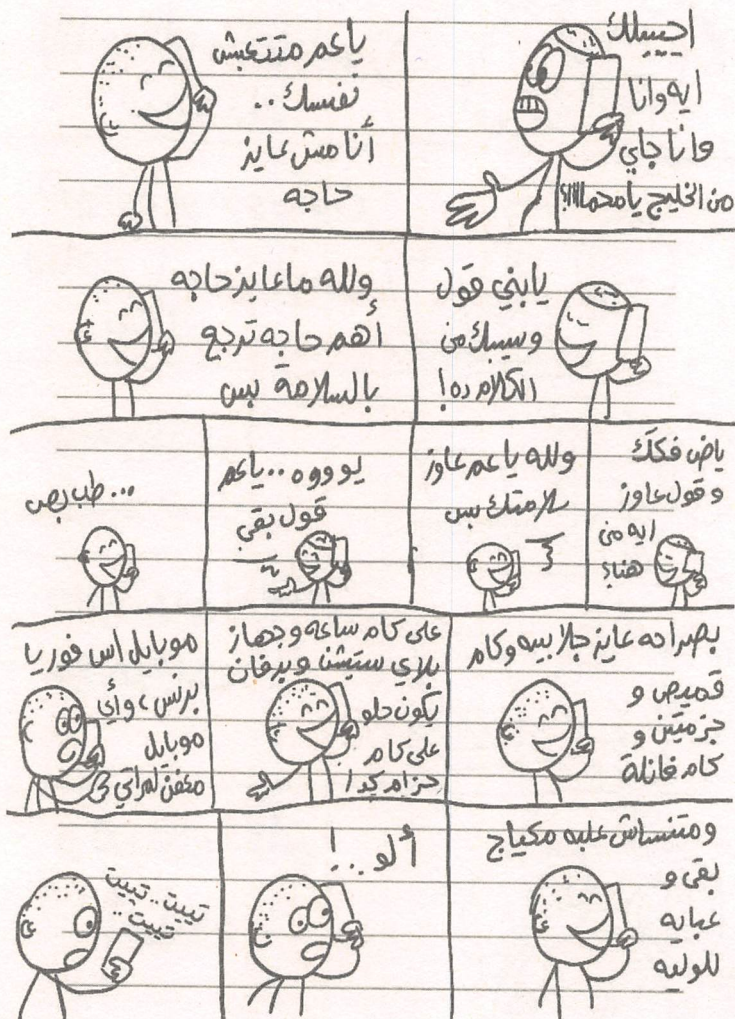 اجيبلك
ايه وانا
وانا جاي
من الخليج يا محمااااا؟
يا عم متتعبش
نفسك..
أنا مش عايز
حاجه
يابني قول
وسيبك من
الكلام ده!
ولله ما عايز حاجه
أهم حاجه ترجع
بالسلامة بس
ياض فكك
وقول عاوز
ايه من
هنا؟
ولله يا عم عاوز
سلامتك بس
يوووه.. يا عم
قول بقى
... طب بص
بصراحه عايز جلابيه وكام
قميص و
جزمتين و
كام فانلة
على كام ساعه وجهاز
بلاي ستيشن وبرفان
يكون حلو
على كام
حزام كدا
موبايل اس فور يا
برنس، وأي
موبايل
معفن لمراتي
ومتنساش علبه مكياج
بقى و
عبايه
للوليه
ألو..!
تييت.. تييت
.. تييت